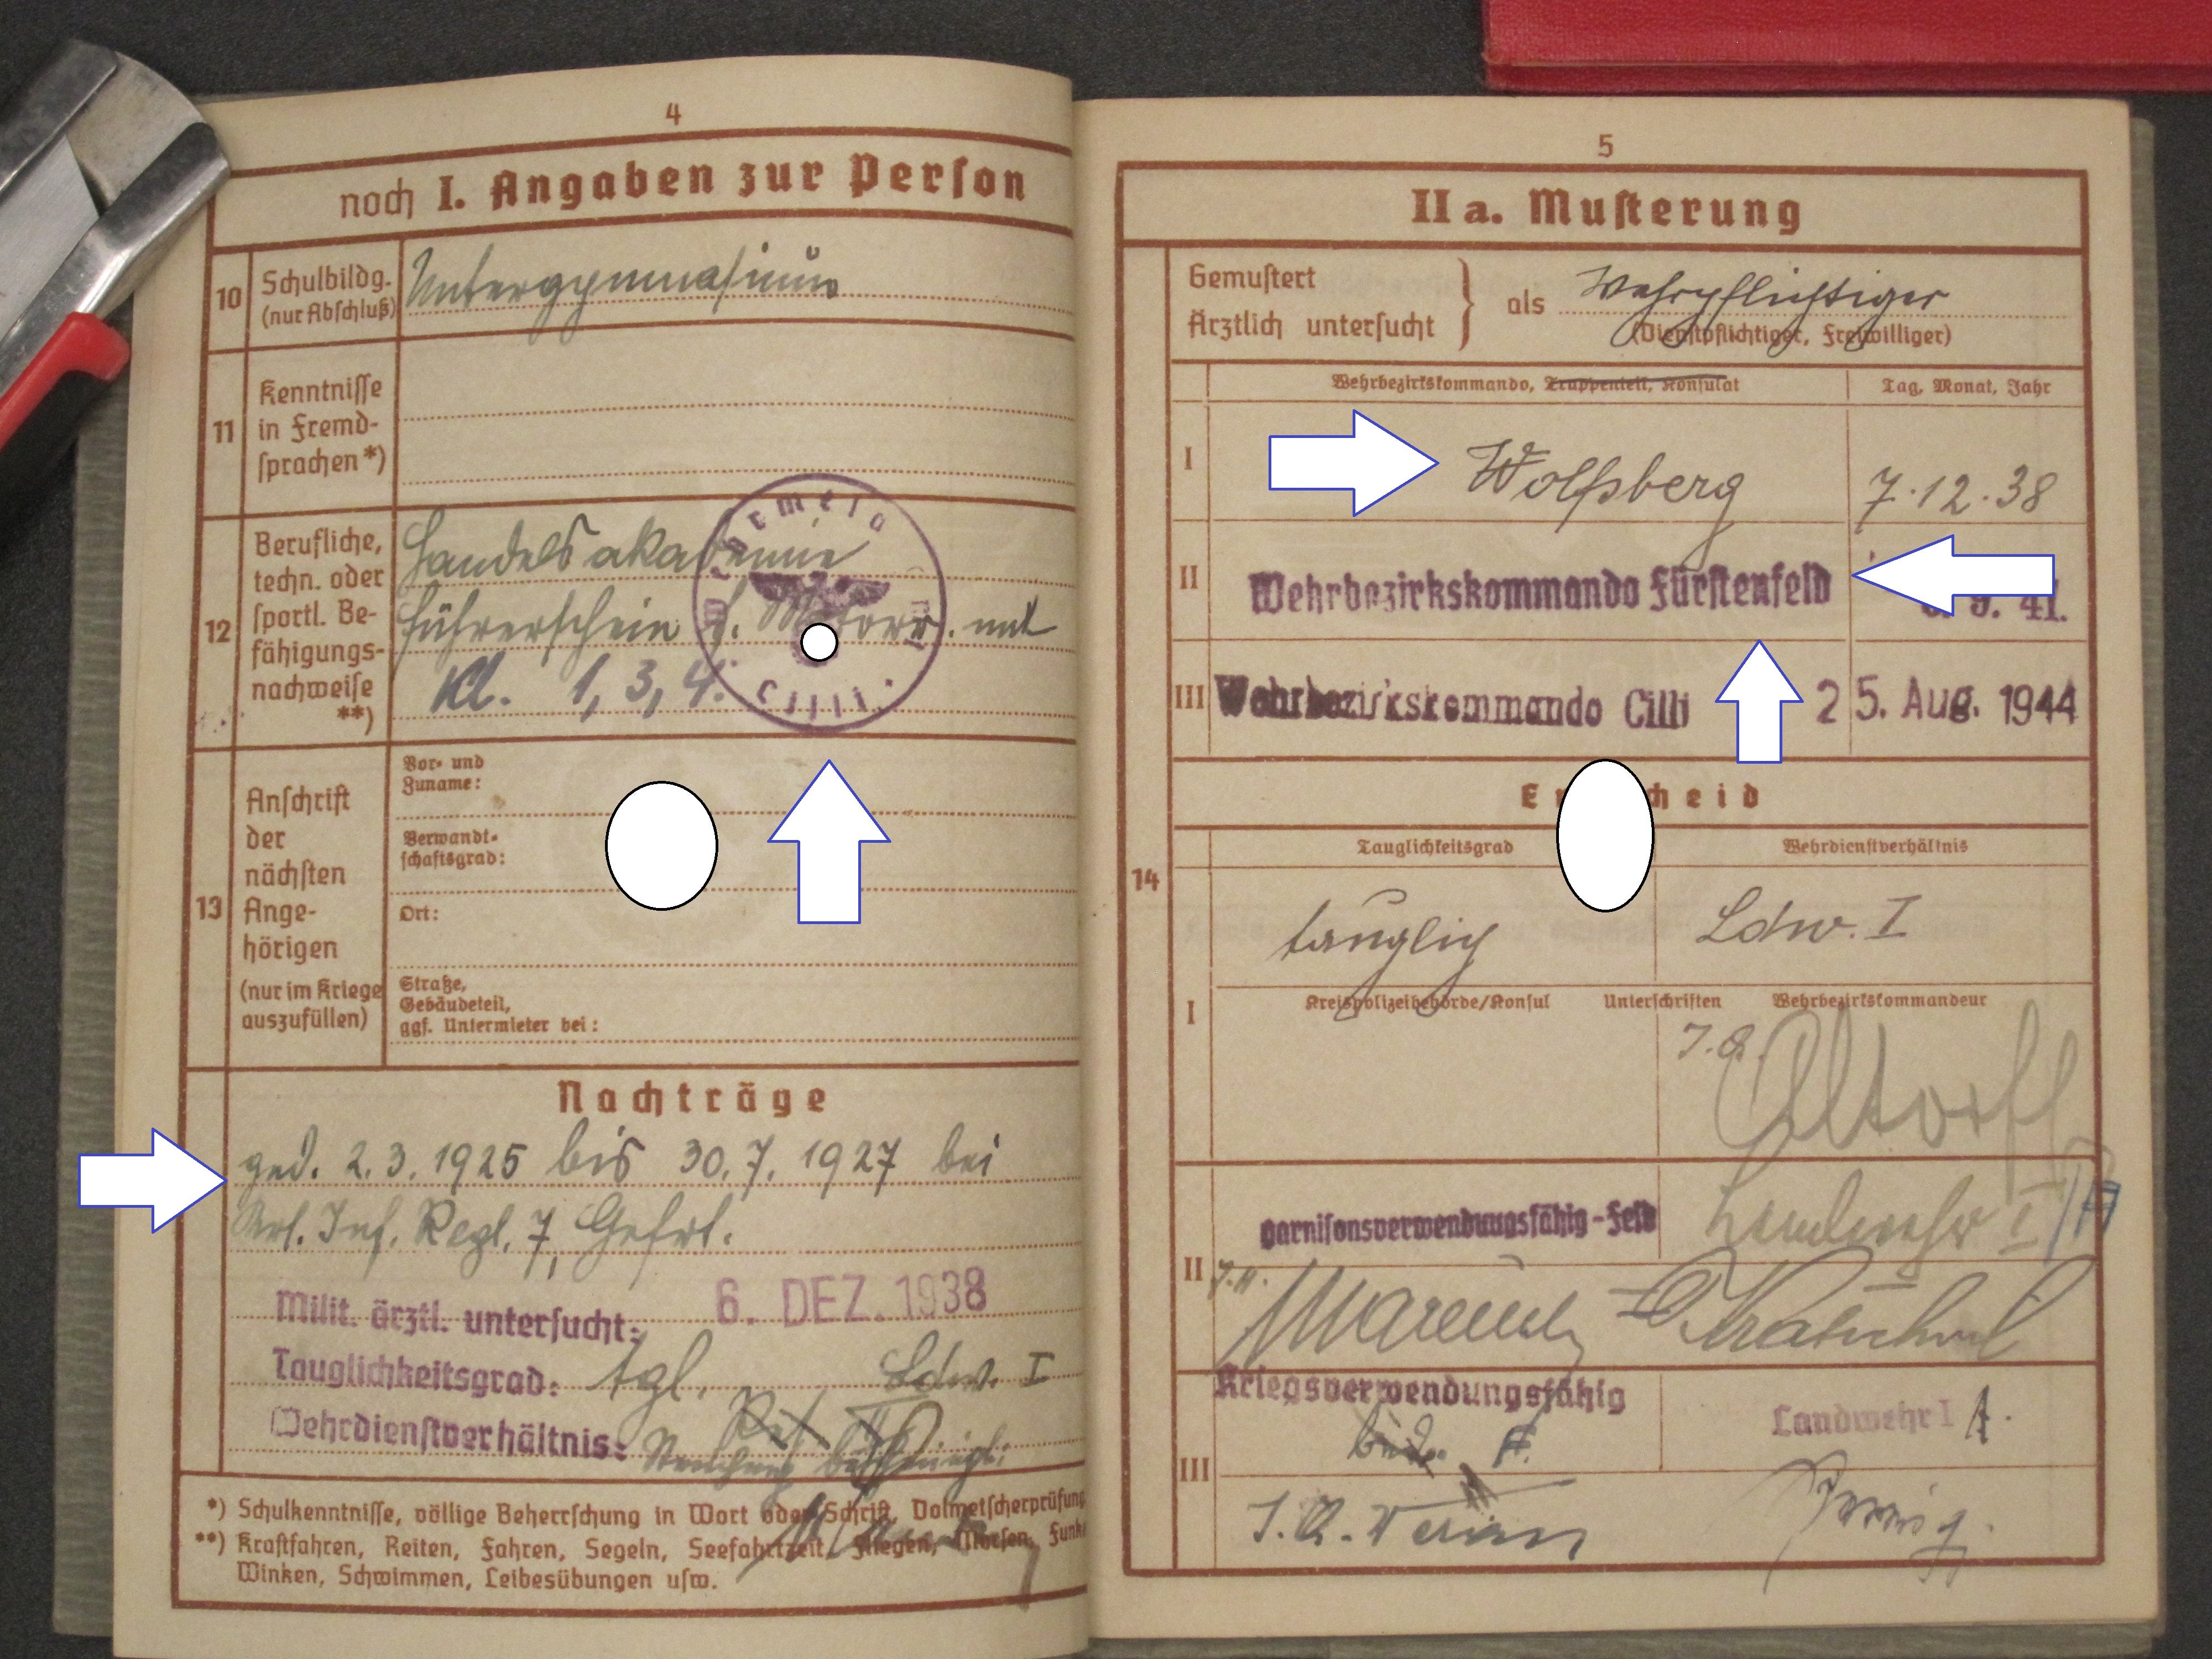 4
noch I. Angaben zur Person
10 Schulbildg. (nur Abschluß) Untergymnasium
11 Kenntnisse in Fremdsprachen *)
12 Berufliche, techn. oder sportl. Befähigungsnachweise **)
Handelsakademie
Führerschein f. mit
Kl. 1, 3, 4.
Cilli
13 Anschrift der nächsten Angehörigen (nur im Kriege auszufüllen)
Vor- und Zuname:
Verwandtschaftsgrad:
Ort:
Straße, Gebäudeteil, ggf. Untermieter bei:
Nachträge
ged. 2.3.1925 bis 30.7.1927 bei
Inf. Regt. 7, Gefrt.
Milit. ärztl. untersucht: 6. DEZ. 1938
Tauglichkeitsgrad: tgl. Ldw. I
Wehrdienstverhältnis:
*) Schulkenntnisse, völlige Beherrschung in Wort oder Schrift, Dolmetscherprüfung
**) Kraftfahren, Reiten, Fahren, Segeln, Seefahrtzeit, Fliegen, Morsen, Funk
Winken, Schwimmen, Leibesübungen usw.
5
II a. Musterung
Gemustert
Ärztlich untersucht } als Wehrpflichtiger
(Dienstpflichtiger, Freiwilliger)
Wehrbezirkskommando, Truppenteil, Konsulat Tag, Monat, Jahr
I Wolfsberg 7.12.38
II Wehrbezirkskommando Fürstenfeld 9. 41.
III Wehrbezirkskommando Cilli 25. Aug. 1944
14
Tauglichkeitsgrad Wehrdienstverhältnis
tauglich Ldw. I
I Kreispolizeibehörde/Konsul Unterschriften Wehrbezirkskommandeur
II garnisonsverwendungsfähig-Feld Landwehr I
III Kriegsverwendungsfähig Landwehr I